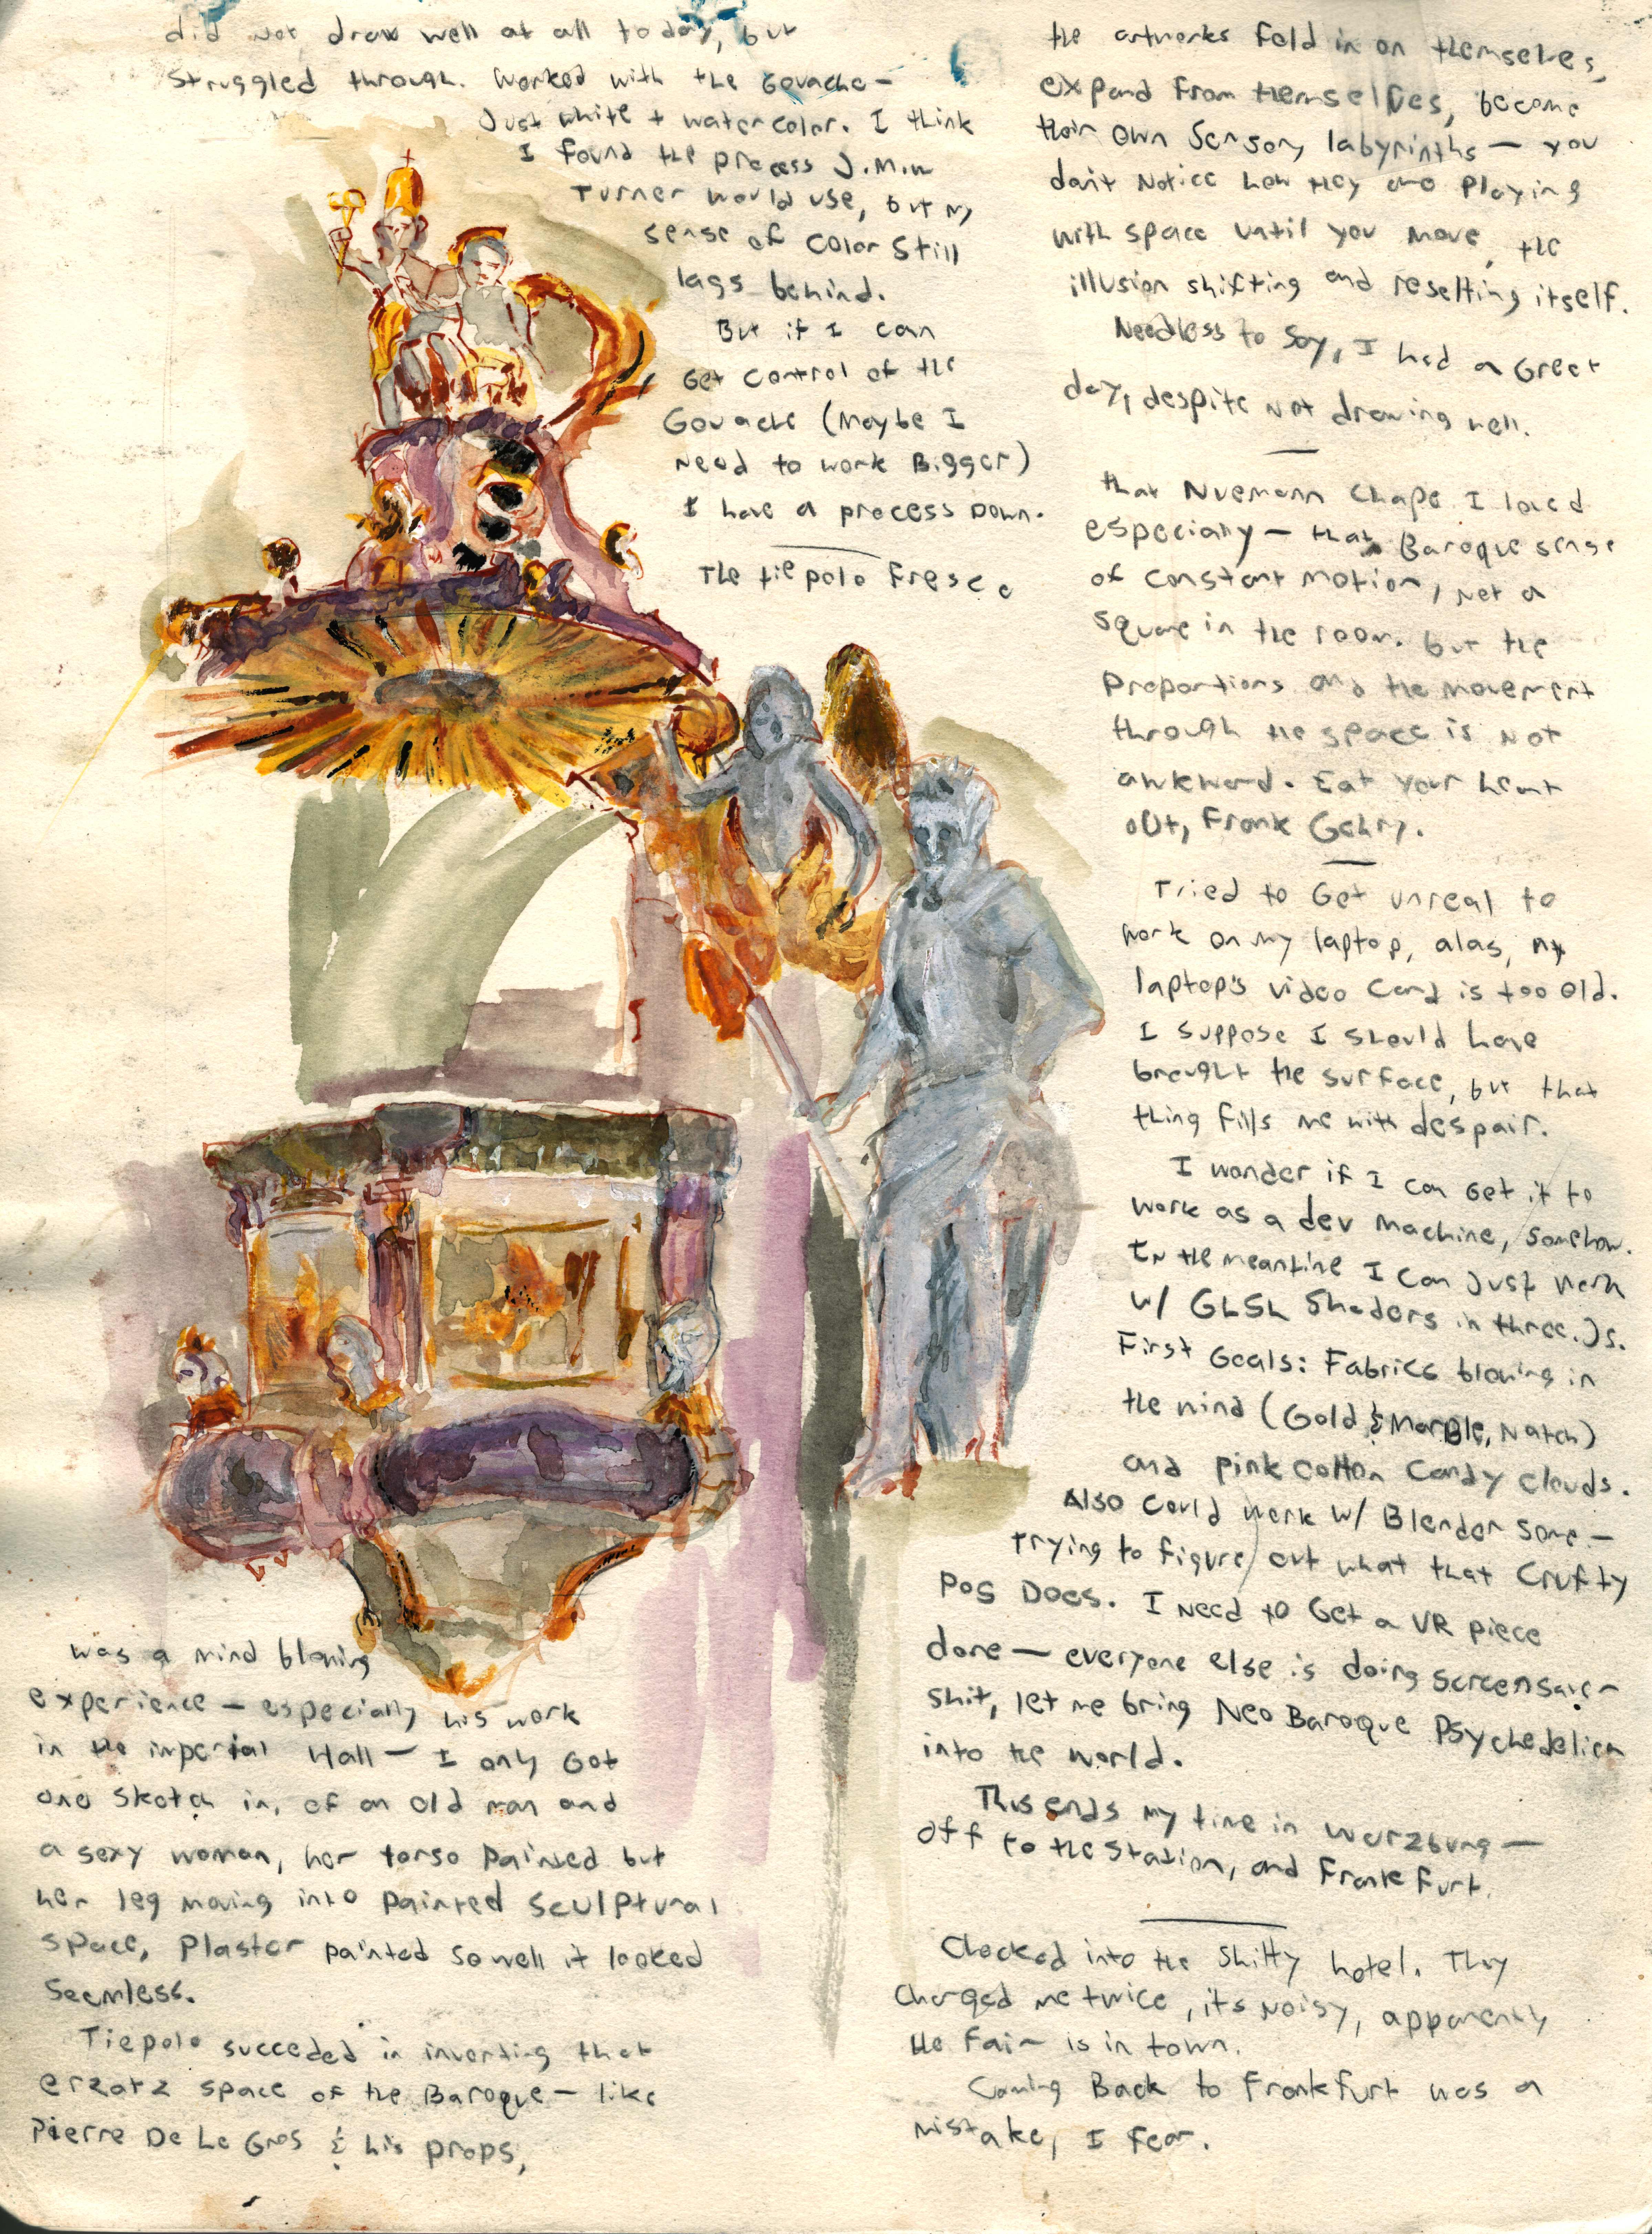 did not draw well at all today, but
struggled through. Worked with the Gouache—
Just white + watercolor. I think
I found the process J.M.W
Turner would use, but my
sense of color still
lags behind.
But if I can
Get control of the
Gouache (Maybe I
need to work Bigger)
I have a process Down.
The tiepolo Fresco
was a mind blowing
experience — especially his work
in the imperial Hall — I only Got
one sketch in, of an old man and
a sexy woman, her torso painted but
her leg moving into painted sculptural
space, Plaster painted so well it looked
Seemless.
Tiepolo succeded in inventing that
erzatz space of the Baroque — like
Pierre De Le Gros & his props,
the artworks fold in on themselves,
expand from themselves, become
their own Sensory labyrinths — you
don't Notice how they are playing
with space until you move, the
illusion shifting and resetting itself.
Needless to say, I had a Great
day, despite not drawing well.
that Nuemann Chape I loved
especially — that Baroque sense
of constant motion, not a
square in the room. but the
Proportions and the movement
through the space is not
awkward. Eat your heart
out, Frank Gehry.
Tried to Get unreal to
work on my laptop, alas, my
laptop's video card is too old.
I suppose I should have
brought the surface, but that
thing fills me with despair.
I wonder if I can Get it to
work as a dev machine, somehow.
In the meantime I can just work
w/ GLSL Shaders in three.Js.
First Goals: Fabrics blowing in
the wind (Gold & Marble, Natch)
and pink cotton Candy clouds.
Also could work w/ Blender some —
trying to figure out what that Crufty
POS Does. I need to Get a VR piece
done — everyone else is doing screensaver
shit, let me bring Neo Baroque Psychedelica
into the world.
This ends my time in Wurzburg —
off to the Station, and Frankfurt.
Checked into the Shitty hotel. They
Charged me twice, it's Noisy, apparently
the Fair is in town.
Coming Back to Frankfurt was a
mistake, I fear.